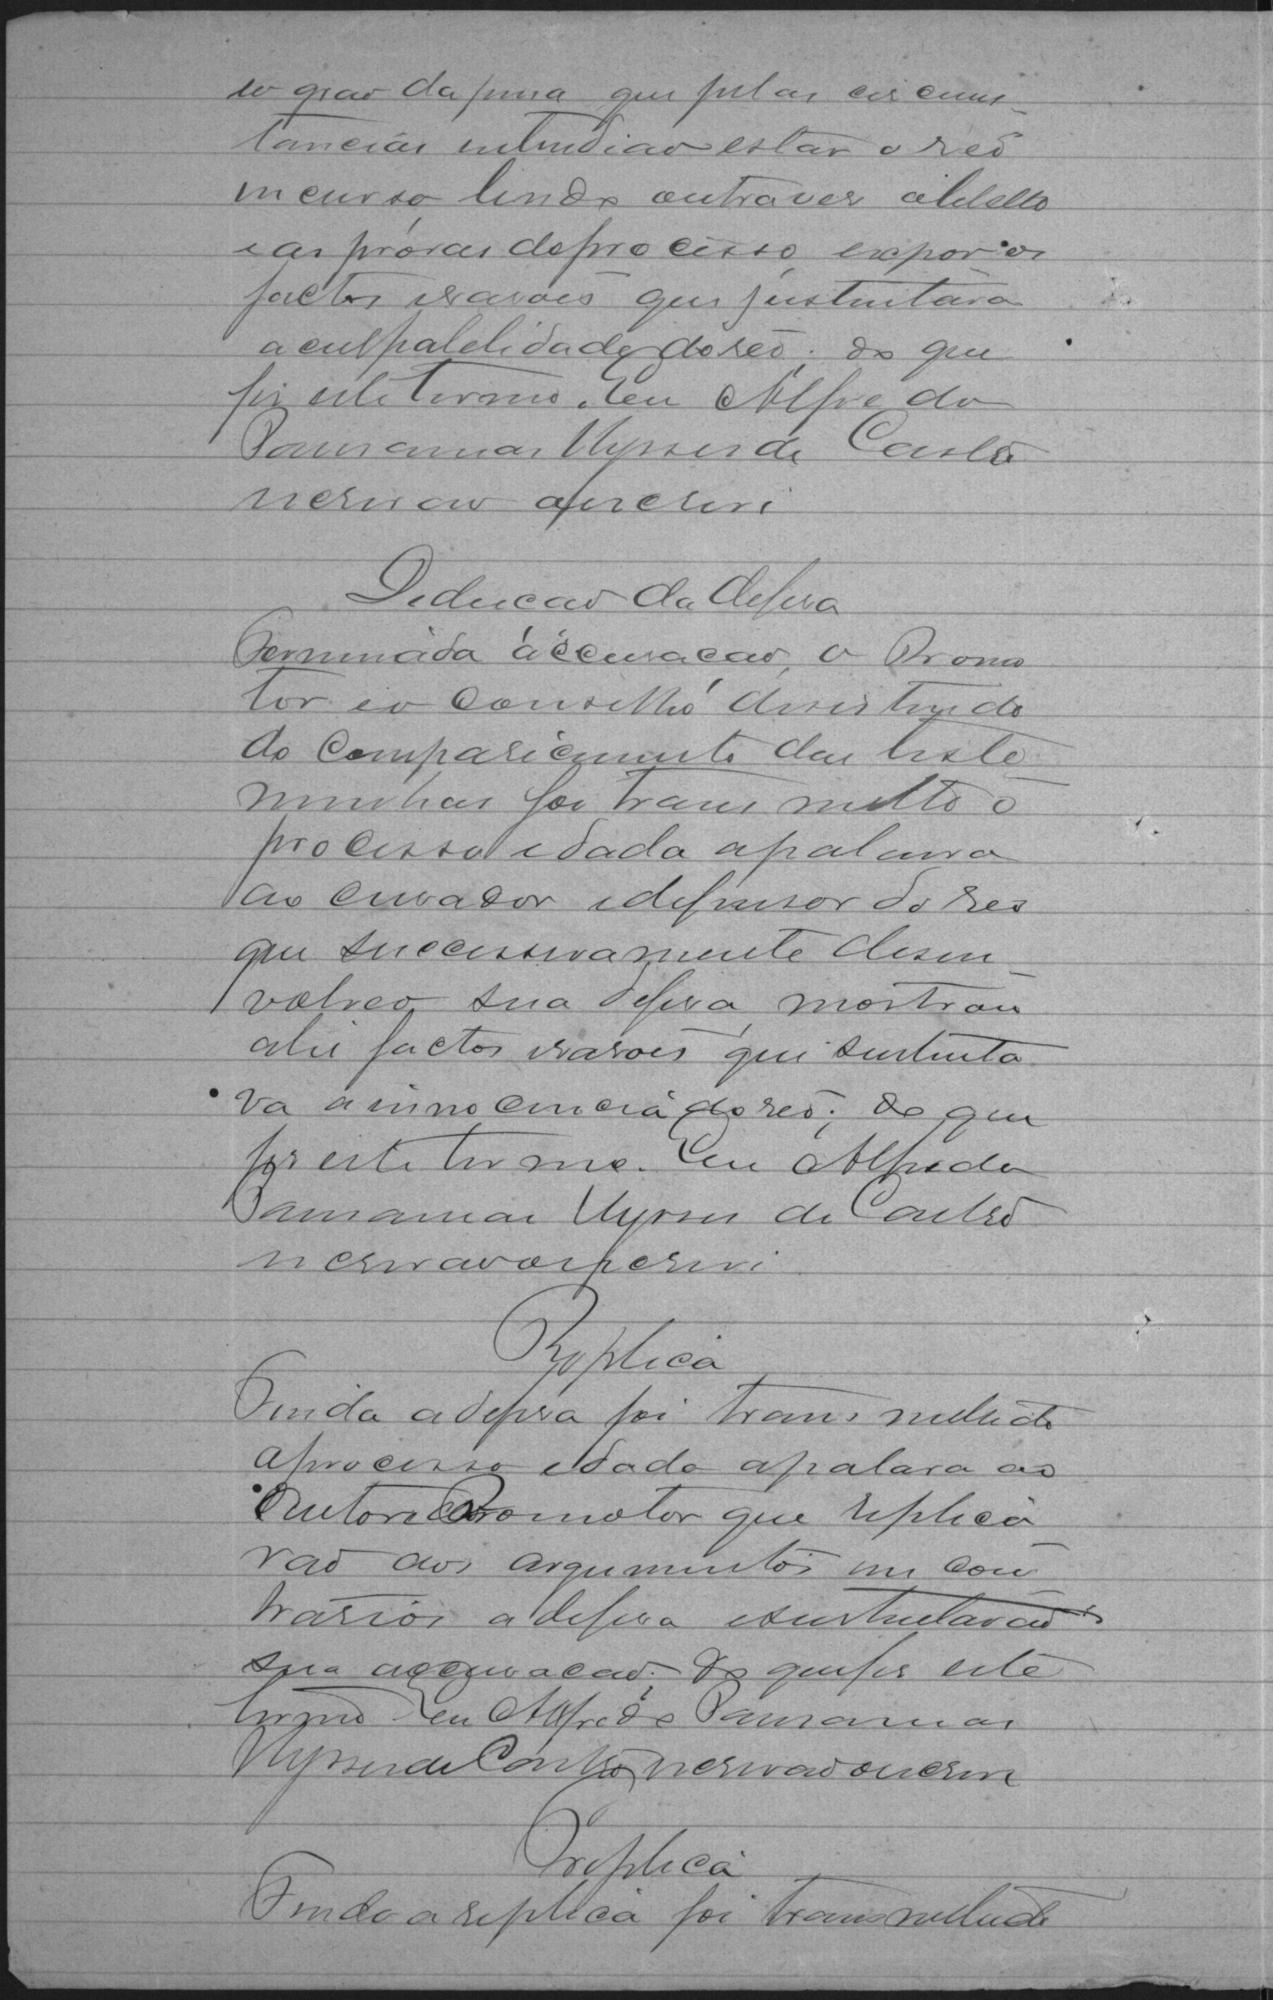 eo grao da pena que pelas circuns
tancias entendiao estar o reo
incurso lendo outra ves o libello
e as provas do processo expor os
factos e rasoes que sustentava
a culpabelidade do reo; do que
fis este termo. Eu Alfredo
Ulysses de Castro
escrivao o escrevi
Deducçao da defesa
Terminada a accusaçao, o Promo
tor e o conselho desistindo
do comparecimento das teste
munhas foi transmettido o
processo e dada a palavra
ao curador e defensor do reo
que successivamente desen
volveo sua defesa, mostrou
a lei factos e rasoes que sustenta
va a innocencia do reo; do que
fis este termo. Eu Alfredo
Ulysses de Castro
escrivao o escrevi
Replica
Finda a defesa foi transmettido
o processo e dada a palavra ao
Autor e ao Promotor que replica
rao aos argumentos em con
trarios a defesa e sustentarao
sua accusacao; do que fis este
termo Eu Alfredo
Ulysses de Castro, escrivao o escrevi
Treplica
Finda a replica foi transmettido